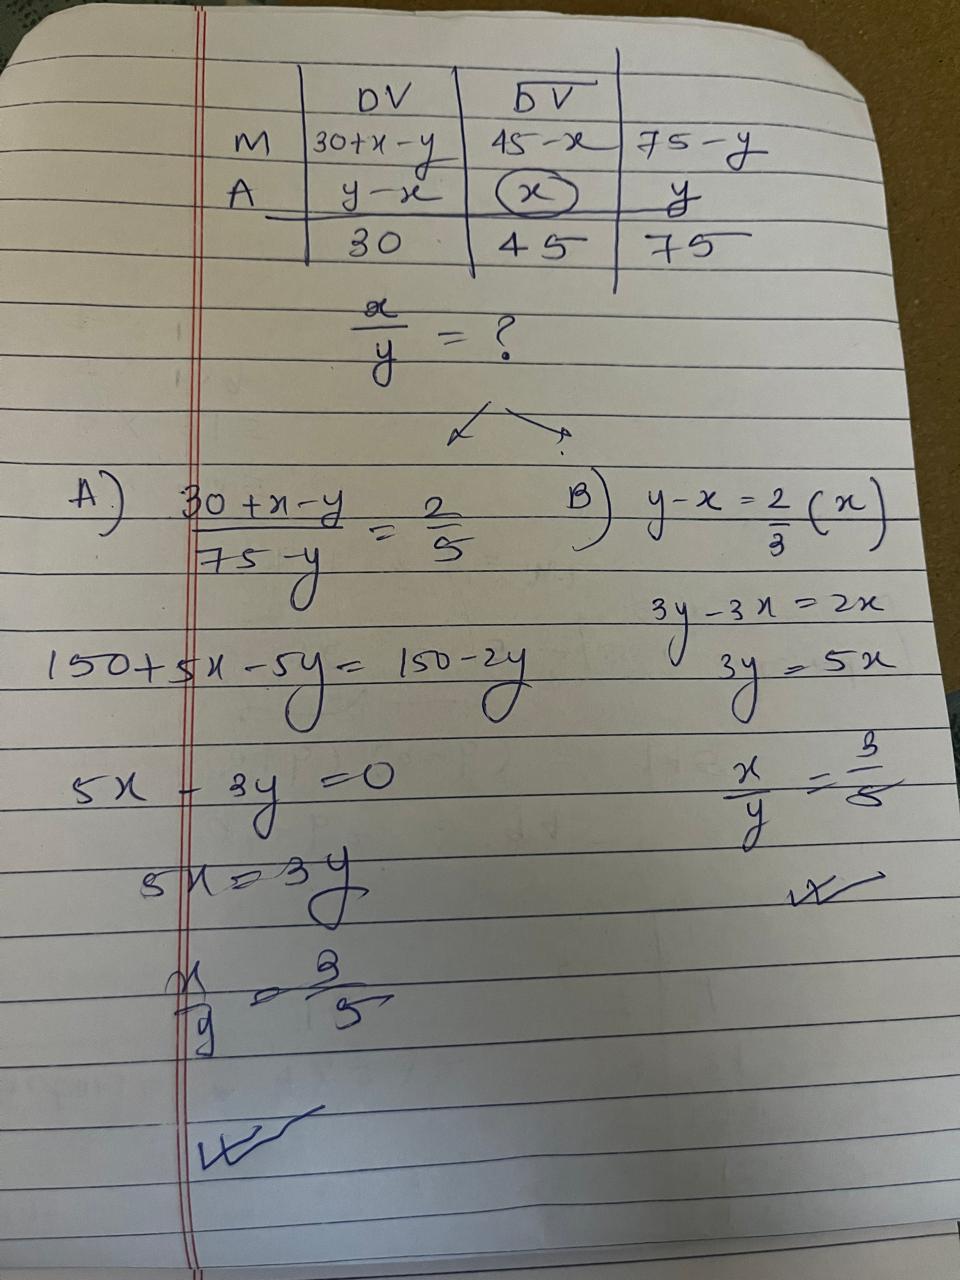 DV D̅V̅
M 30+x-y 45-x 75-y
A y-x x y
30 45 75
x/y = ?
A) (30+x-y)/(75-y) = 2/5
150+5x-5y = 150-2y
5x - 3y = 0
5x = 3y
x/y = 3/5
B) y-x = 2/3 (x)
3y-3x = 2x
3y = 5x
x/y = 3/5